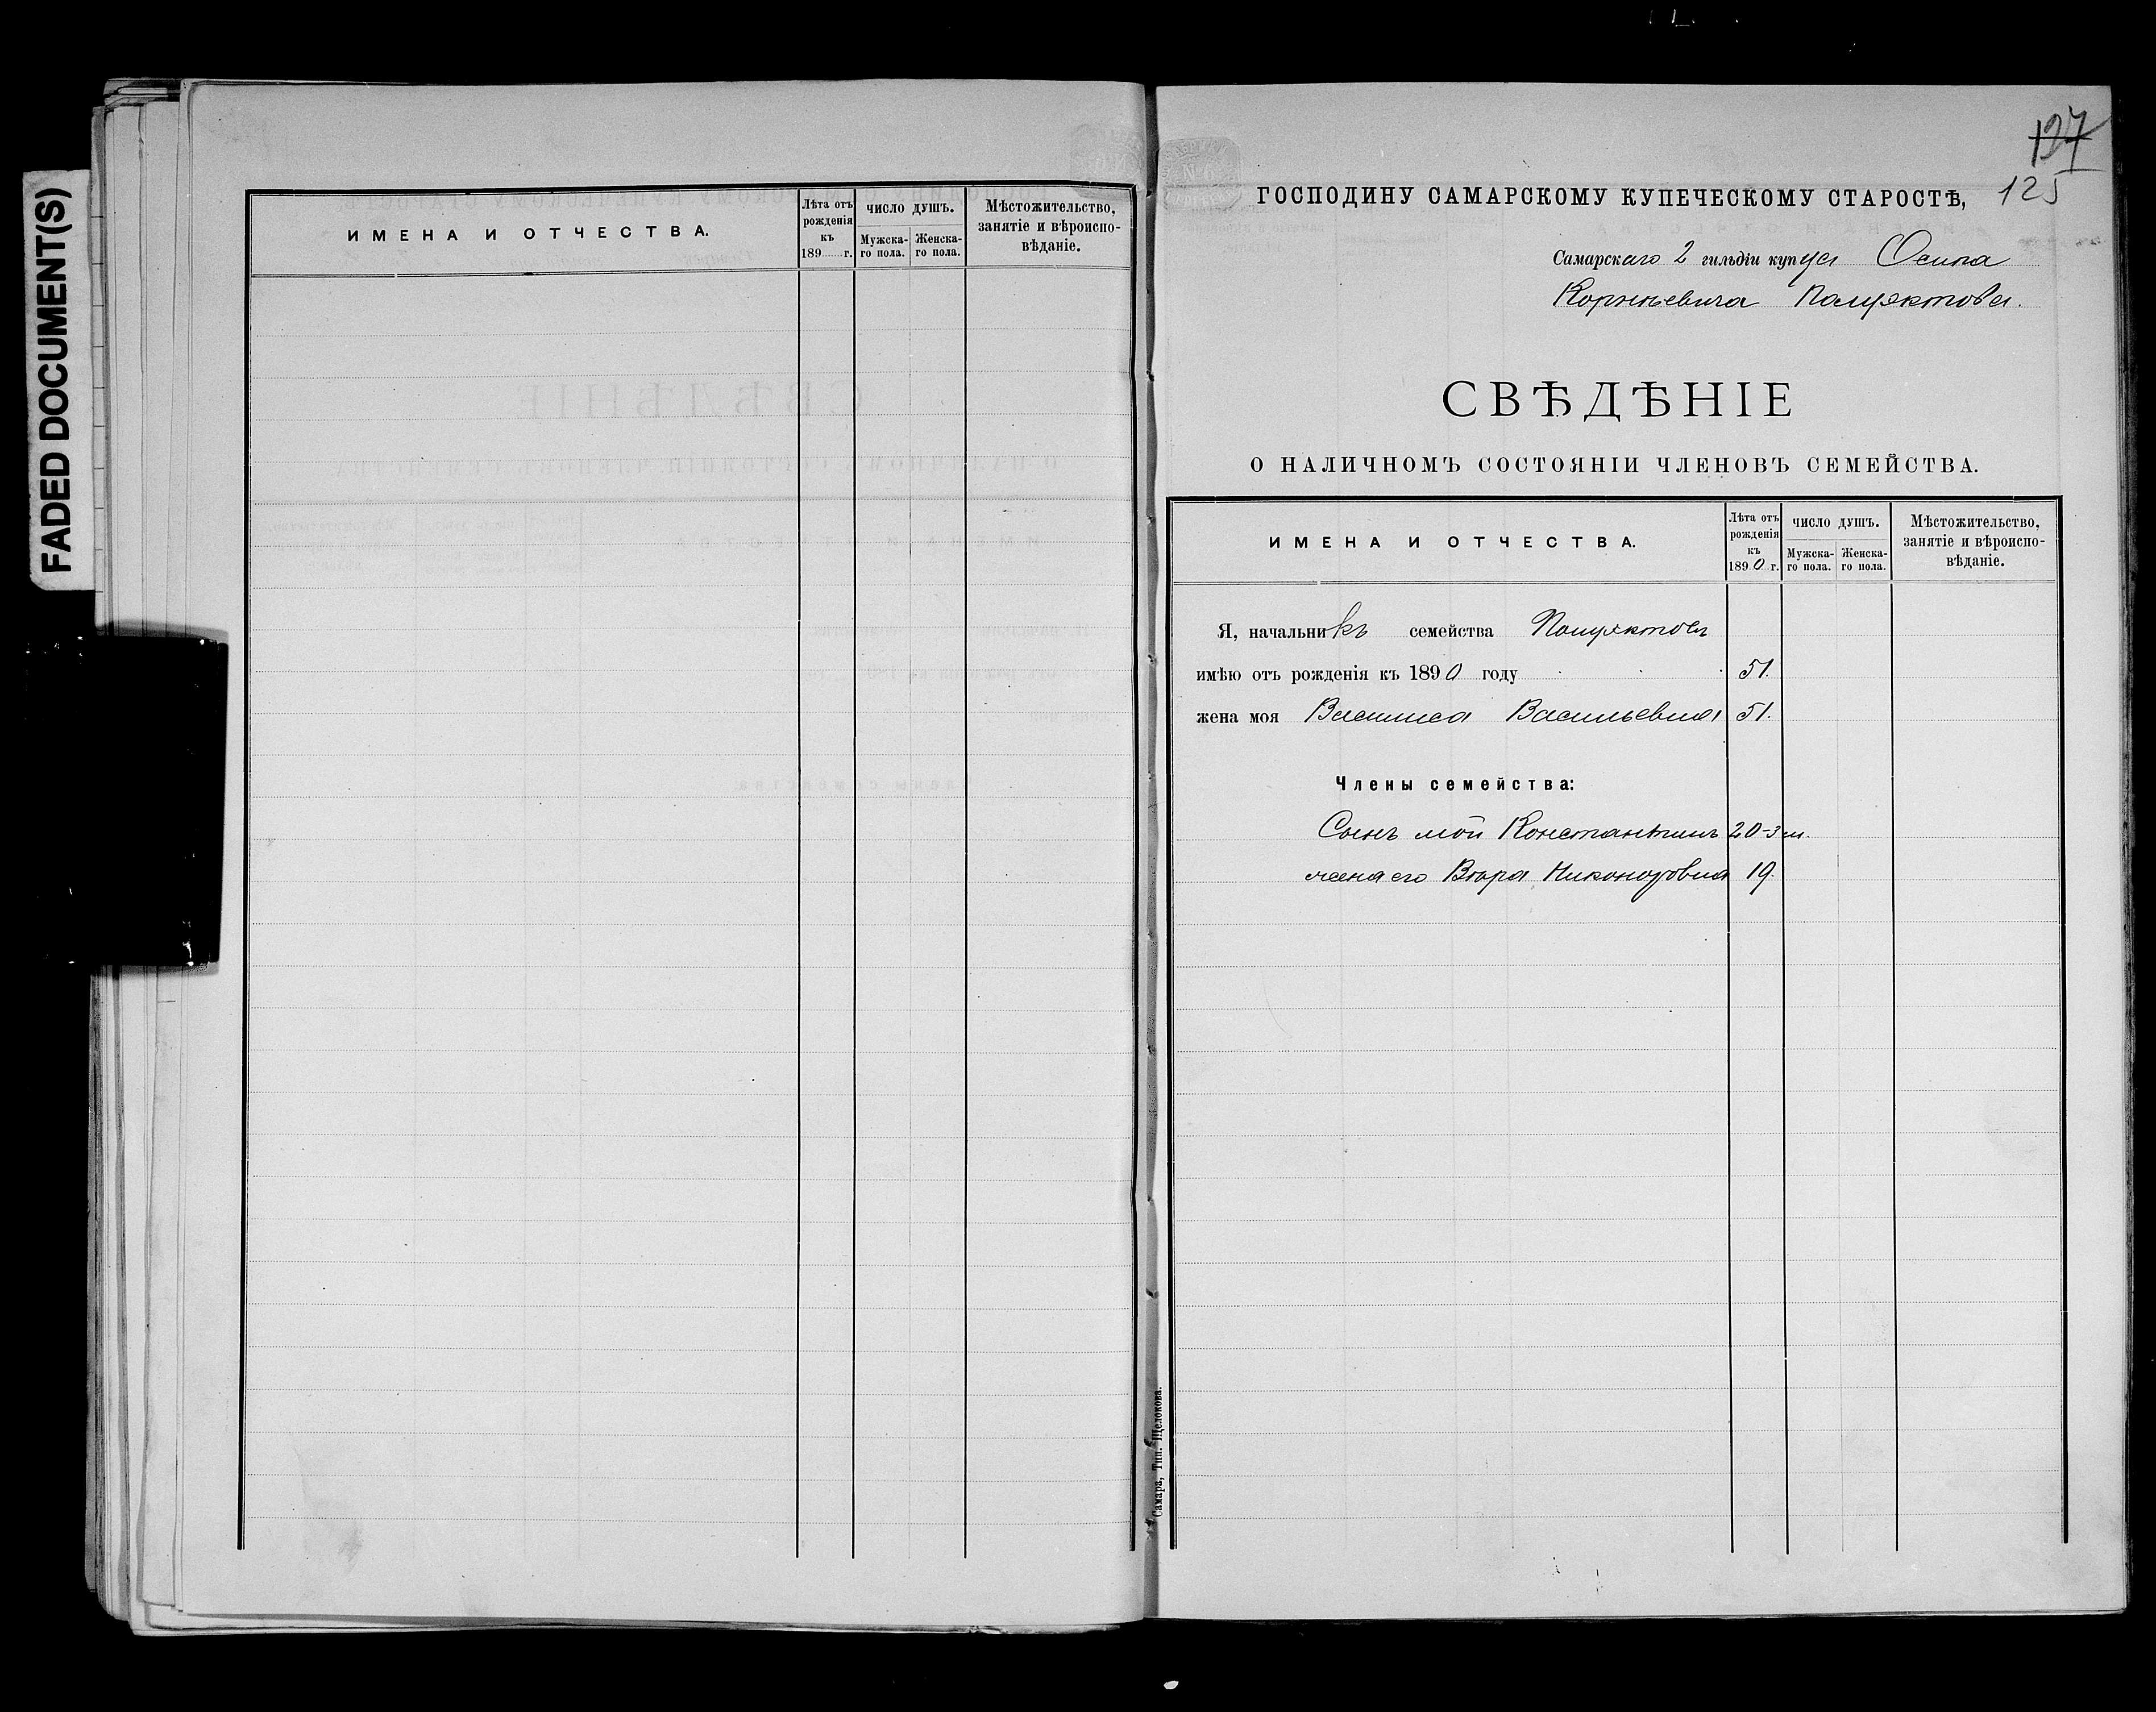 FADED DOCUMENT(S)
ИМЕНА И ОТЧЕСТВА.
Лѣта отъ рожденія къ 189 г.
ЧИСЛО ДУШЪ.
Мужска-го пола.
Женска-го пола.
Мѣстожительство, занятіе и вѣроиспо-вѣданіе.
127
125
ГОСПОДИНУ САМАРСКОМУ КУПЕЧЕСКОМУ СТАРОСТѢ,
Самарскаго 2 гильдіи купца Осипа
Корнѣевича Полуяктова.
СВѢДѢНІЕ
О НАЛИЧНОМЪ СОСТОЯНІИ ЧЛЕНОВЪ СЕМЕЙСТВА.
ИМЕНА И ОТЧЕСТВА.
Лѣта отъ рожденія къ 1890 г.
ЧИСЛО ДУШЪ.
Мужска-го пола.
Женска-го пола.
Мѣстожительство, занятіе и вѣроиспо-вѣданіе.
Я, начальникъ семейства Полуяктовъ
имѣю отъ рожденія къ 1890 году 51.
жена моя Васились Васильевна 51.
Члены семейства:
Сынъ мой Константинъ 20-3 м.
жена его Вѣра Никоноровна 19.
Самара, Тип. Щелокова.